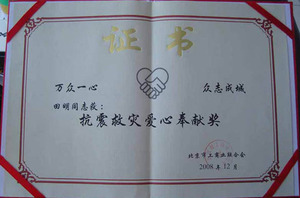 证书
万众一心 众志成城
田明同志获：
抗震救灾爱心奉献奖
北京市工商业联合会
2008年12月